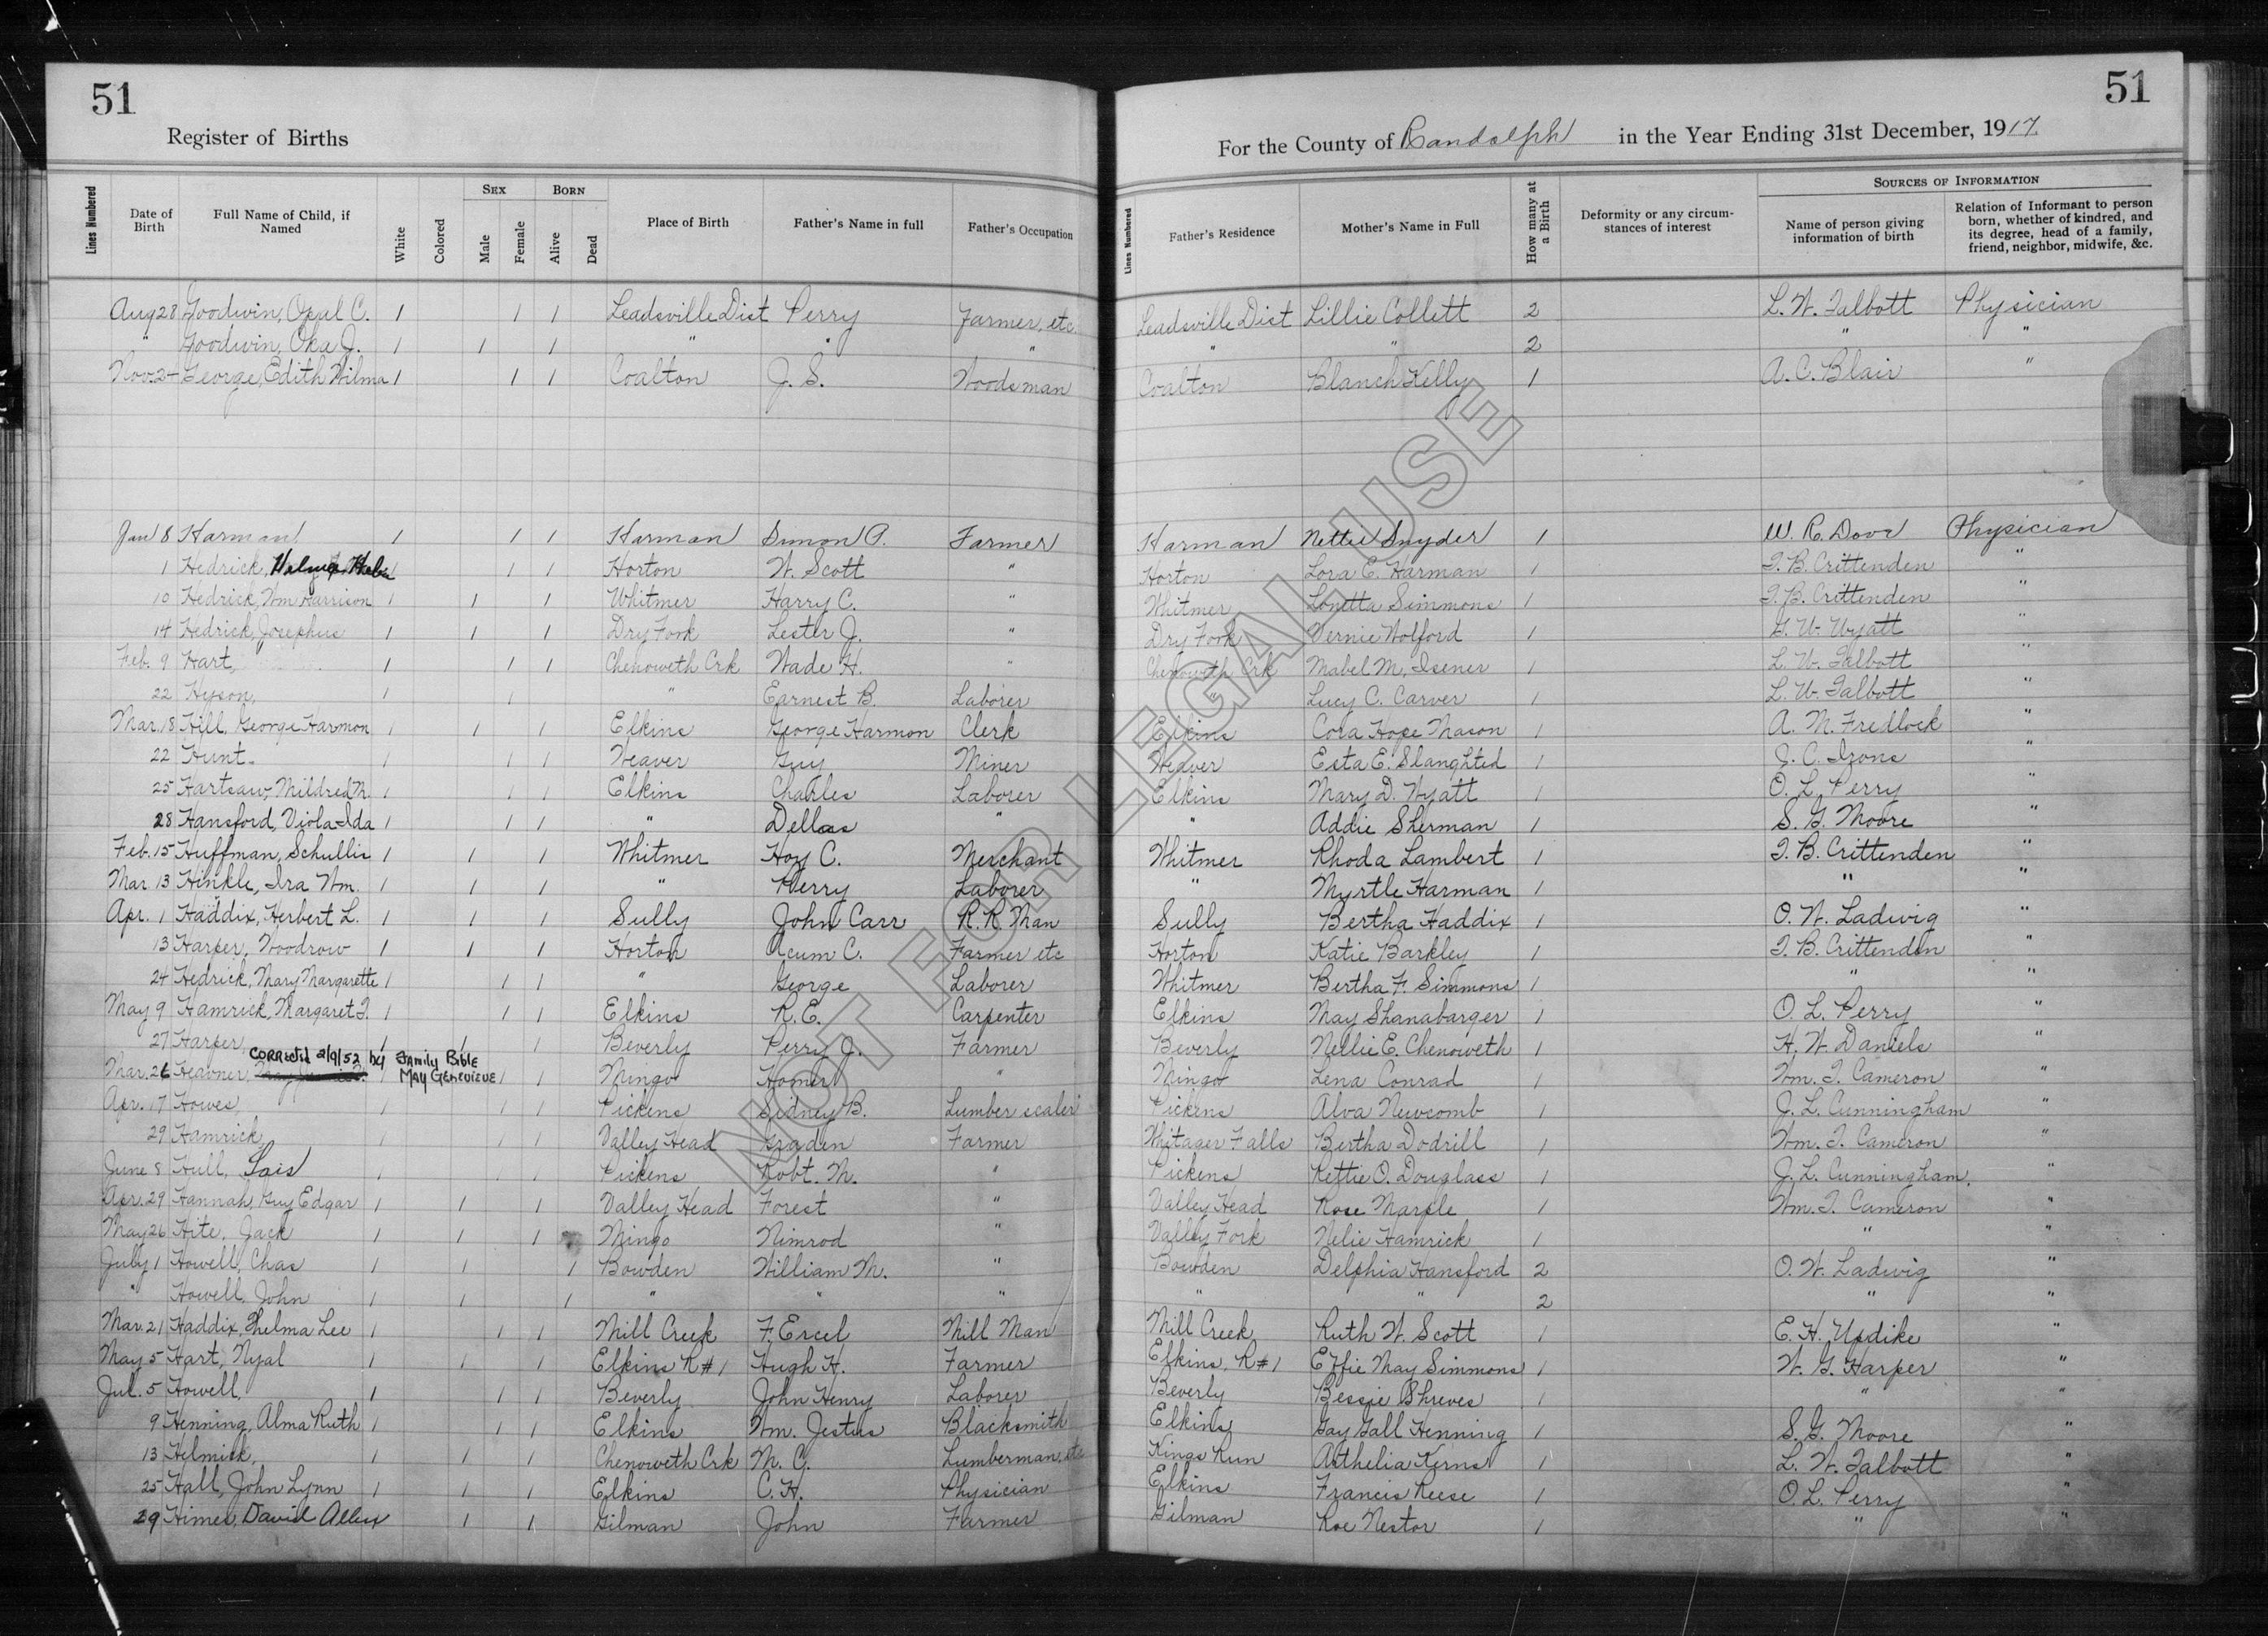 51
51
Register of Births
For the County of Randolph in the Year Ending 31st December, 1917.
Lines Numbered
Date of Birth
Full Name of Child, if Named
White
Colored
Sex
Male
Female
Born
Alive
Dead
Place of Birth
Father's Name in full
Father's Occupation
Lines Numbered
Father's Residence
Mother's Name in Full
How many at a Birth
Deformity or any circumstances of interest
Sources of Information
Name of person giving information of birth
Relation of Informant to person born, whether of kindred, and its degree, head of a family, friend, neighbor, midwife, &c.
Aug 28 Goodwin, Opal C. 1 1 1 Leadsville Dist Perry Farmer, etc. Leadsville Dist Lillie Collett 2 L. W. Talbott Physician
" Goodwin, Oka J. 1 1 1 " " " " " 2 " "
Nov. 2 George, Edith Wilma 1 1 1 Coalton J. S. Woodsman Coalton Blanch Kelly 1 A. C. Blair "
Jan 8 Harman, 1 1 1 Harman Simon P. Farmer Harman Nettie Snyder 1 W. R. Dove Physician
1 Hedrick, 1 1 1 Horton W. Scott " Horton Lora E. Harman 1 T. B. Crittenden "
10 Hedrick, Wm Harrison 1 1 1 Whitmer Harry C. " Whitmer Lonetta Simmons 1 T. B. Crittenden "
14 Hedrick, Josephus 1 1 1 Dry Fork Lester J. " Dry Fork Vernie Wolford 1 G. W. Wyatt "
Feb. 9 Hart, 1 1 1 Chenoweth Crk Wade H. " Chenoweth Crk Mabel M. Isener 1 L. W. Talbott "
22 Hyson, 1 1 " Earnest B. Laborer " Lucy C. Carver 1 L. W. Talbott "
Mar. 18 Hill, George Harmon 1 1 1 Elkins George Harmon Clerk Elkins Cora Hope Mason 1 A. M. Fredlock "
22 Hunt. 1 1 1 Weaver Guy Miner Weaver Esta E. 1 J. C. Irons "
25 Hartsaw, Mildred M. 1 1 1 Elkins Charles Laborer Elkins Mary D. Wyatt 1 O. L. Perry "
28 Hansford, Viola Ida 1 1 1 " Dellas " " Addie Sherman 1 S. G. Moore "
Feb. 15 Huffman, Schullie 1 1 1 Whitmer Hoy C. Merchant Whitmer Rhoda Lambert 1 T. B. Crittenden "
Mar. 13 Hinkle, Ira Wm. 1 1 1 " Perry Laborer " Myrtle Harman 1 " "
Apr. 1 Haddix, Herbert L. 1 1 1 Sully John Carr R. R. Man Sully Bertha Haddix 1 O. W. Ladwig "
13 Harper, Woodrow 1 1 1 Horton Acum C. Farmer etc Horton Katie Barkley 1 T. B. Crittenden "
24 Hedrick, Mary Margarette 1 1 1 " George Laborer Whitmer Bertha F. Simmons 1 " "
May 9 Hamrick, Margaret J. 1 1 1 Elkins R. E. Carpenter Elkins May Shanabarger 1 O. L. Perry "
27 Harper, 1 1 1 Beverly Perry J. Farmer Beverly Nellie E. Chenoweth 1 H. W. Daniels "
Corrected 2/9/52 by Family Bible
Mar. 26 Heavner, May Genevieve 1 1 Mingo Homer " Mingo Lena Conrad 1 Wm. T. Cameron "
Apr. 17 Howes, 1 1 1 Pickens Sidney B. Lumber scaler Pickens Alva Newcomb 1 J. L. Cunningham "
29 Hamrick, 1 1 1 Valley Head Graden Farmer Whitager Falls Bertha Dodrill 1 Wm. T. Cameron "
June 8 Hull, Lois 1 1 1 Pickens Robt. M. " Pickens Kettie O. Douglass 1 J. L. Cunningham. "
Apr. 29 Hannah, Guy Edgar 1 1 1 Valley Head Forest " Valley Head Rose Marple 1 Wm. T. Cameron "
May 26 Hite, Jack 1 1 1 Mingo Nimrod " Valley Fork Nelie Hamrick 1 " "
July 1 Howell, Chas 1 1 1 Bowden William M. " Bowden Delphia Hansford 2 O. W. Ladwig "
" Howell, John 1 1 1 " " " " " 2 " "
Mar. 21 Haddix, Thelma Lee 1 1 1 Mill Creek F. Ercel Mill Man Mill Creek Ruth W. Scott 1 E. H. Updike "
May 5 Hart, Nyal 1 1 1 Elkins R#1 Hugh H. Farmer Elkins, R#1 Effie May Simmons 1 W. G. Harper "
Jul. 5 Howell, 1 1 1 Beverly John Henry Laborer Beverly Bessie Shreves 1 " "
9 Henning, Alma Ruth 1 1 1 Elkins Wm. Jestus Blacksmith Elkins Gay Gall Henning 1 S. G. Moore "
13 Helmick, 1 1 1 Chenoweth Crk M. C. Lumberman, etc Kings Run Arthelia Kerns 1 L. W. Talbott "
25 Hall, John Lynn 1 1 1 Elkins C. H. Physician Elkins Francis Reese 1 O. L. Perry "
29 Himes, David Allen 1 1 Gilman John Farmer Gilman Roe Nestor 1 " "
NOT FOR LEGAL USE